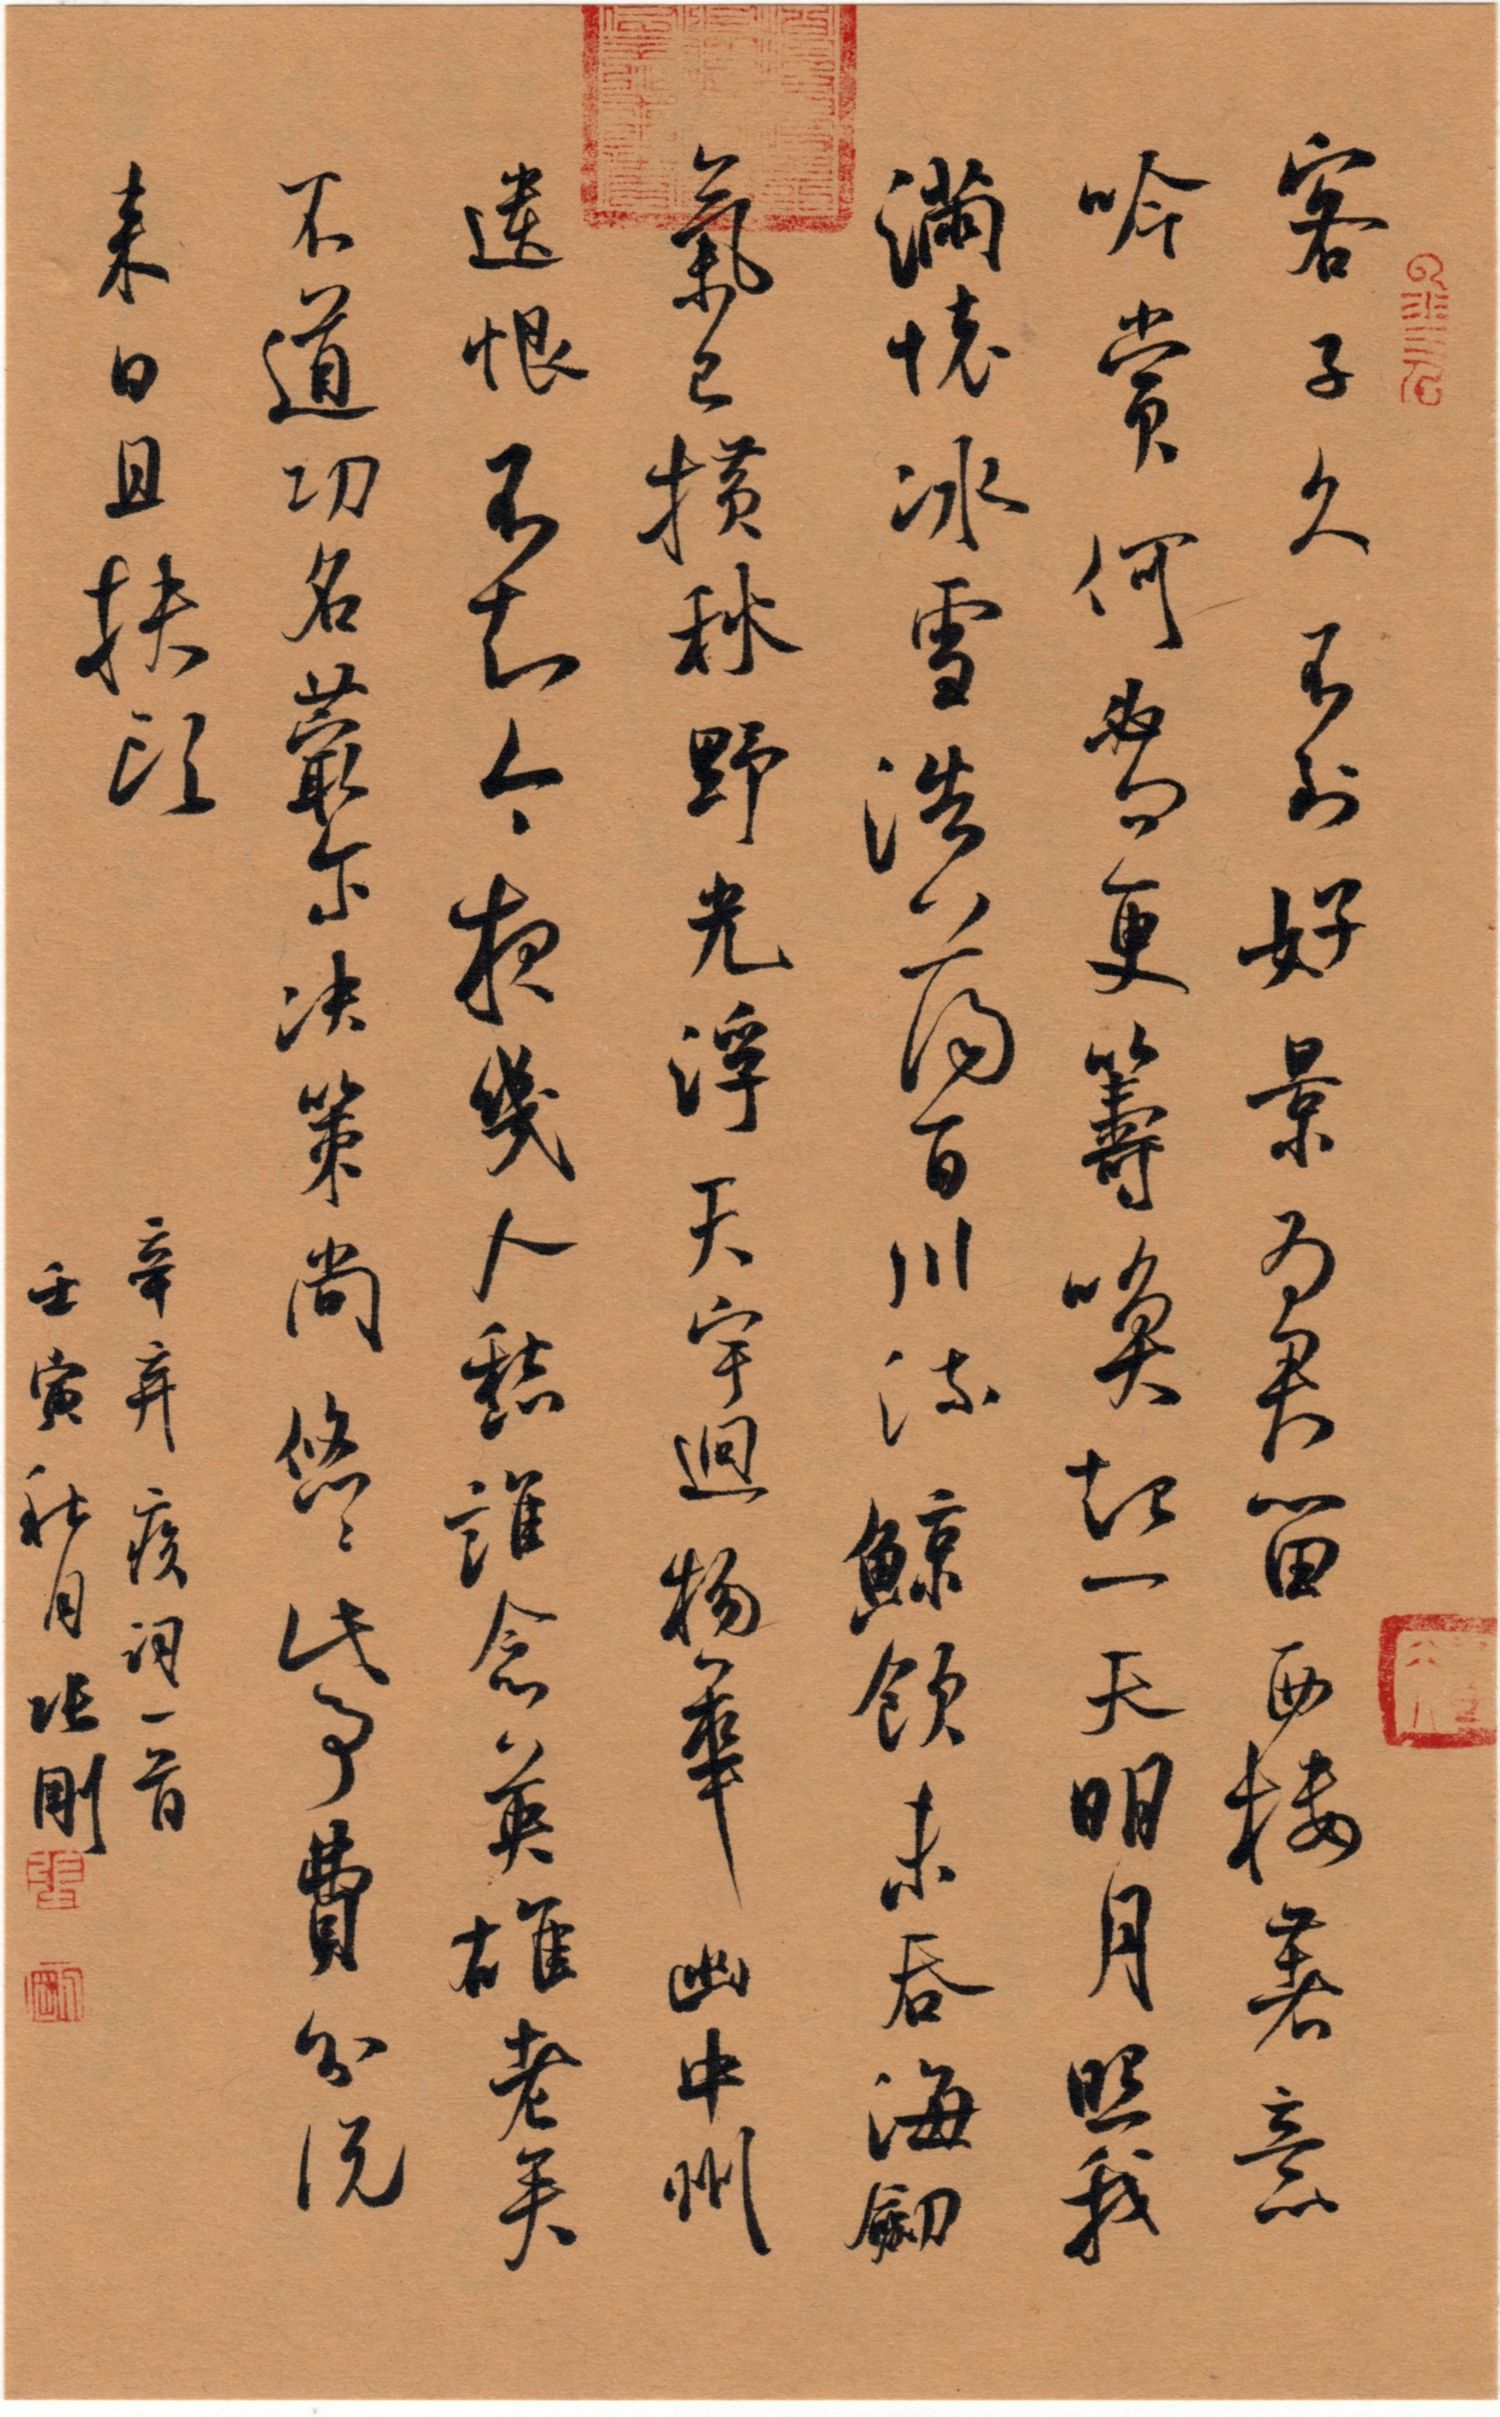 客子久不到好景为君留西楼著意
吟赏何必问更籌喚起一天明月照我
满怀冰雪浩荡百川流鯨飲未吞海劒
氣已横秋野光浮天宇迥物華幽中州
遗恨不知今夜幾人愁誰念英雄老矣
不道功名蕞尔决策尚悠々此事費分说
来日且扶头
辛弃疾词一首
壬寅秋月张剛